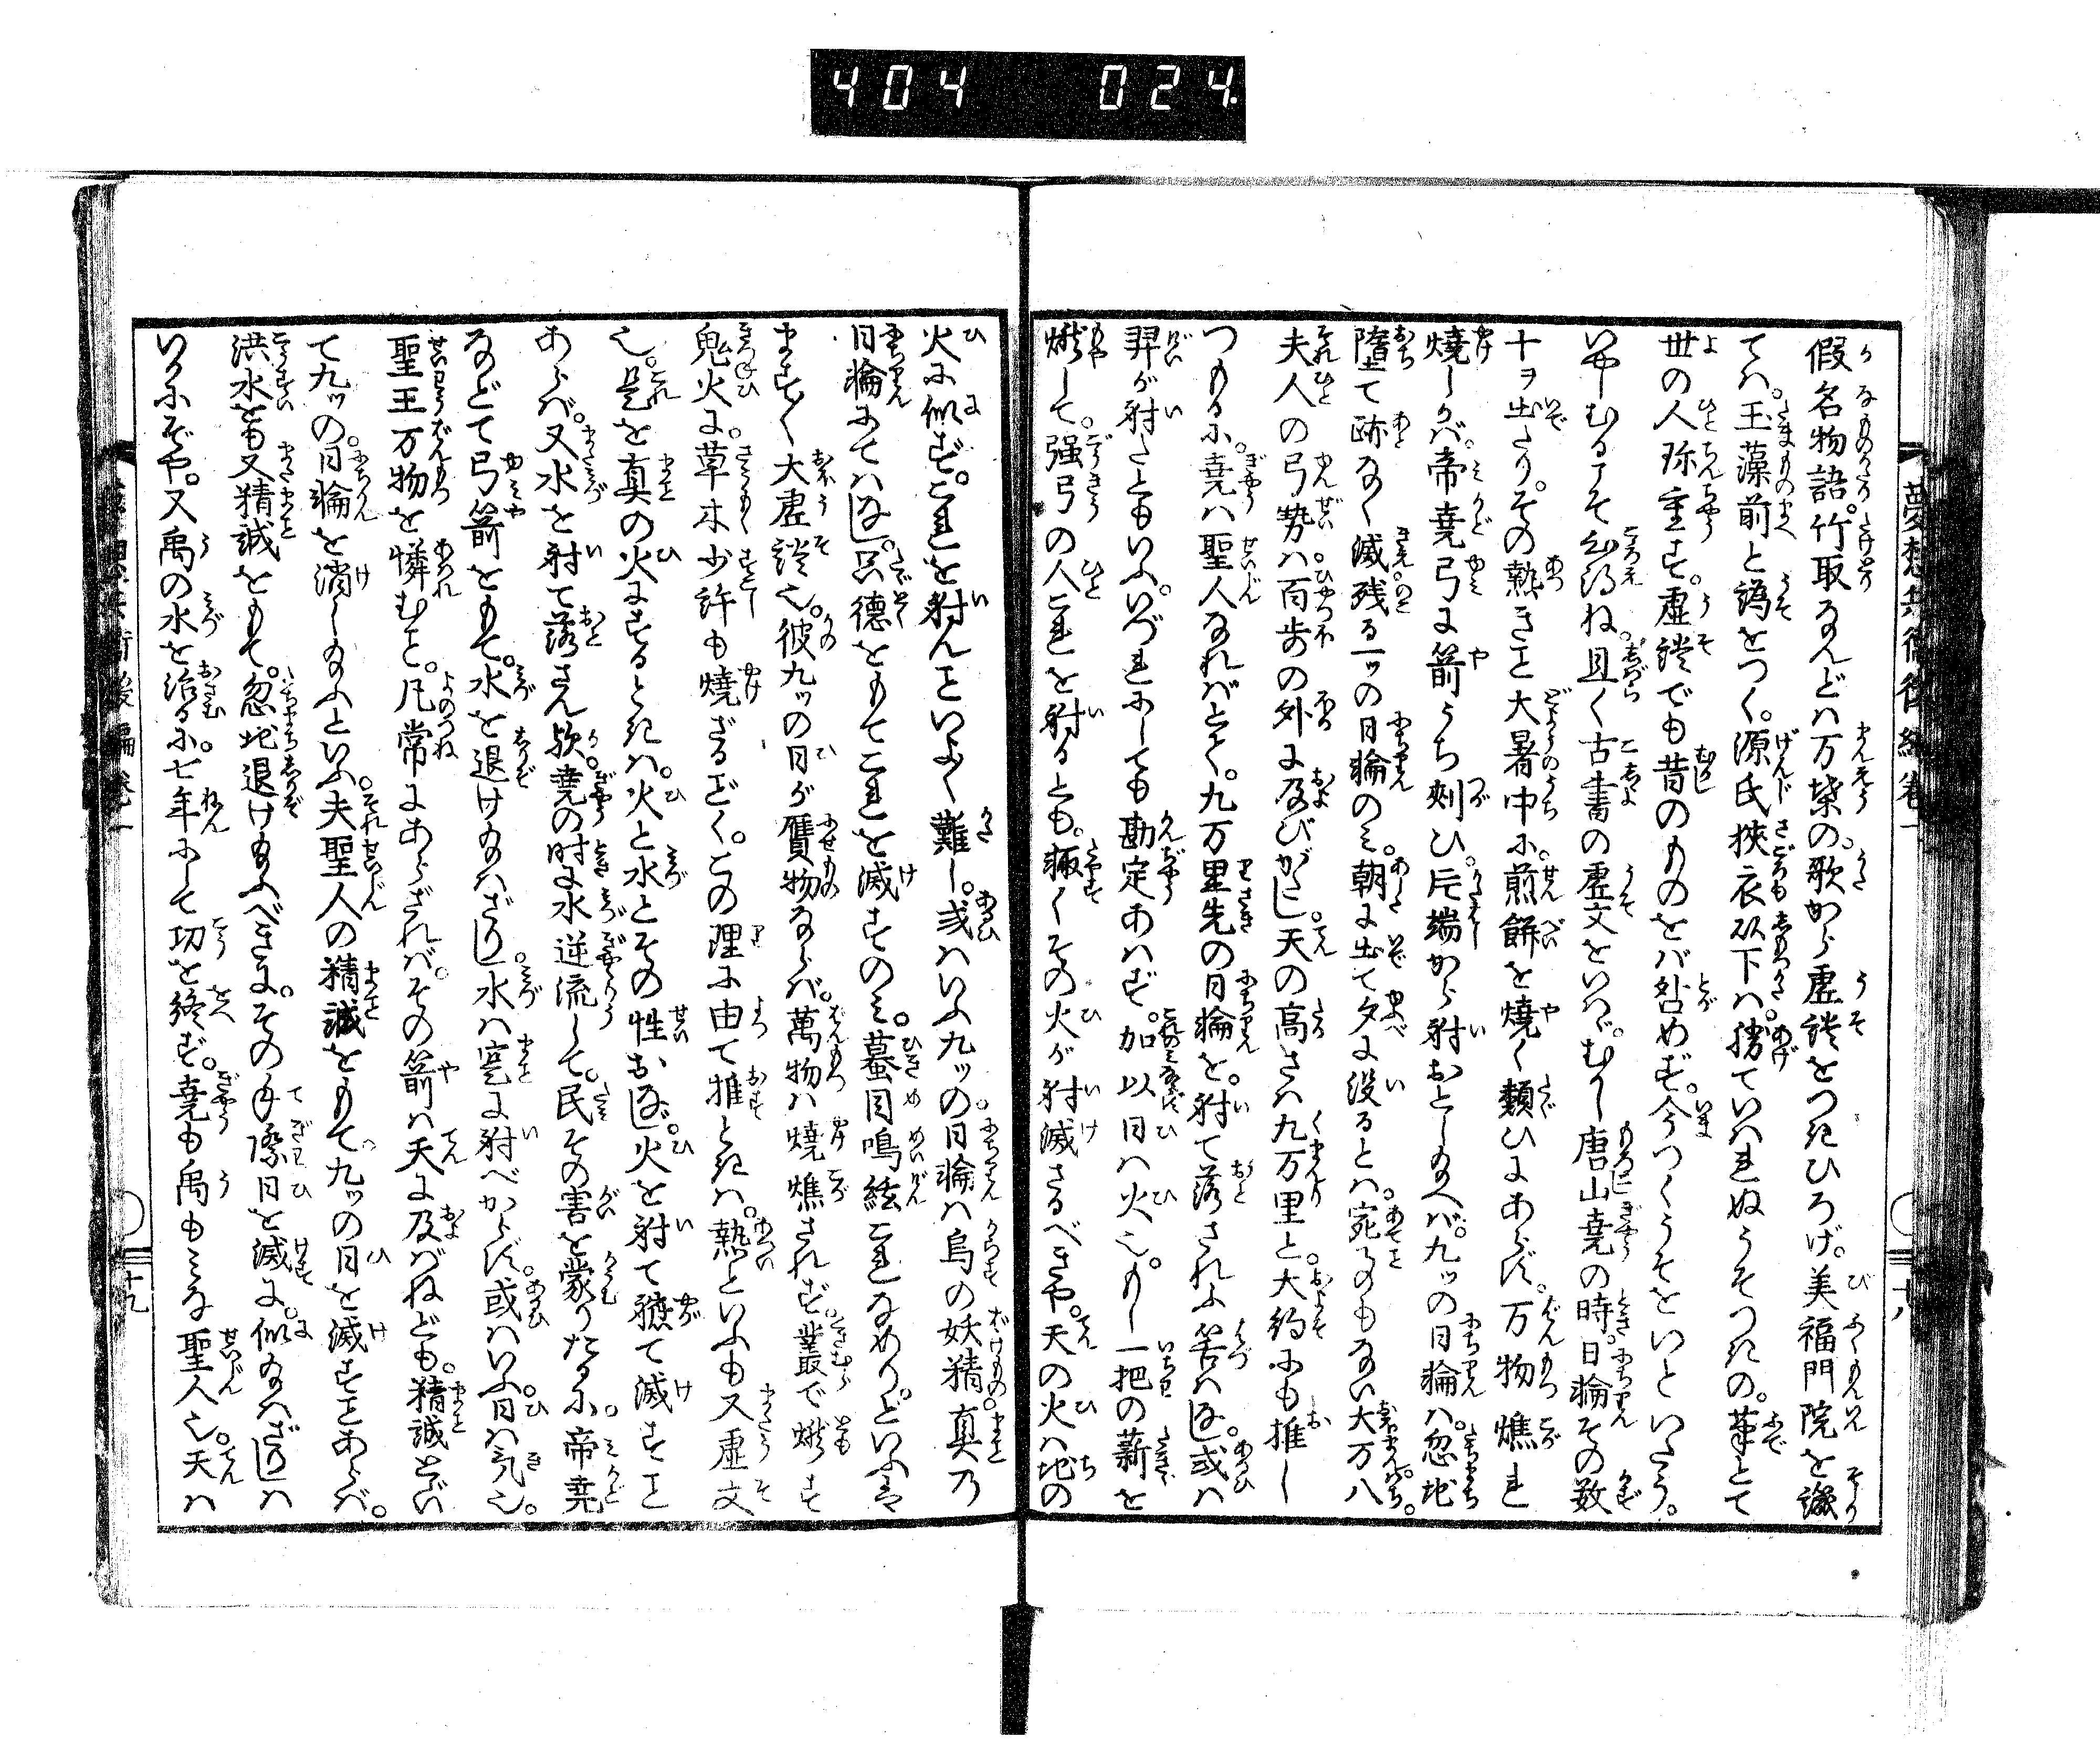 404 024.
夢想兵衛後編巻一
假名物語。竹取なんどハ万葉の。歌から虚談をつきひろげ。美福門院を譏
てハ。玉藻前と譌をつく。源氏狭衣以下ハ。勝ていはれぬうそつきの。筆とて
世の人珎重す。虚談でも昔のものをバ咎めず。今つくうそをいといたう。
いやしむるこそ心得ね。且く古書の虚文をいはゞ。むかし唐山堯の時。日輪その数
十ヲ出たり。その熱きこと大暑中に。煎餅を焼く類ひにあらず。万物燋れ
焼しかバ。帝堯弓に箭うち刎ひ。片端から射おとし給へバ。九ッの日輪ハ。忽地
堕て跡なく滅残る一ッの日輪のミ。朝に出て夕に没るとハ。宛ものもない大万八
夫人の弓勢ハ。百歩の外に及びがたし。天の高さハ九万里と。大約にも推し
つもるに。堯ハ聖人なれバとて。九万里先の日輪を。射て落さるゝ筈ハなし。或ハ
羿が射たともいふ。いづれにしても勘定あはず。加以日ハ火也。もし一把の薪を
燃して。强弓の人これを射るとも。輙くその火が射滅さるべきや。天の火ハ地の
火に似ず。これを射んこといよ〱難し。或ハいふ九ッの日輪ハ烏の妖精。真乃
日輪にてハなし。只徳をもてこれを滅すのミ。蟇目鳴絃これなめりといふ言
ます〱大虚談也。彼九ッの日が贋物ならバ。萬物ハ燒燋されず。叢で燃す
鬼火に。草木少許も燒ざるごとく。この理に由て推ときハ。熱といふも又虚文
也。是を真の火にするときハ。火と水とその性おなじ。火を射て軈て滅すこと
あらバ。又水を射て落さん歟。堯の时に水逆流して。民その害を蒙りたるに。帝堯
などて弓箭をもて。水を退け給ハざりし。水ハ寔に射べからず。或ハいふ日ハ気也。
聖王万物を憐むこと。凡常にあらざれバ。その箭ハ天に及バねども。精誠をい
て九ッの。日輪を消し給ふといふ。夫聖人の精誠をもて。九ッの日を滅すことあらバ。
洪水をも又精誠をもて。忽地退け給ふべきに。その手際日を滅に。似給ハざりしハ
いかにぞや。又禹の水を治るに。七年にして功を終ず。堯も禹もミな聖人也。天ハ